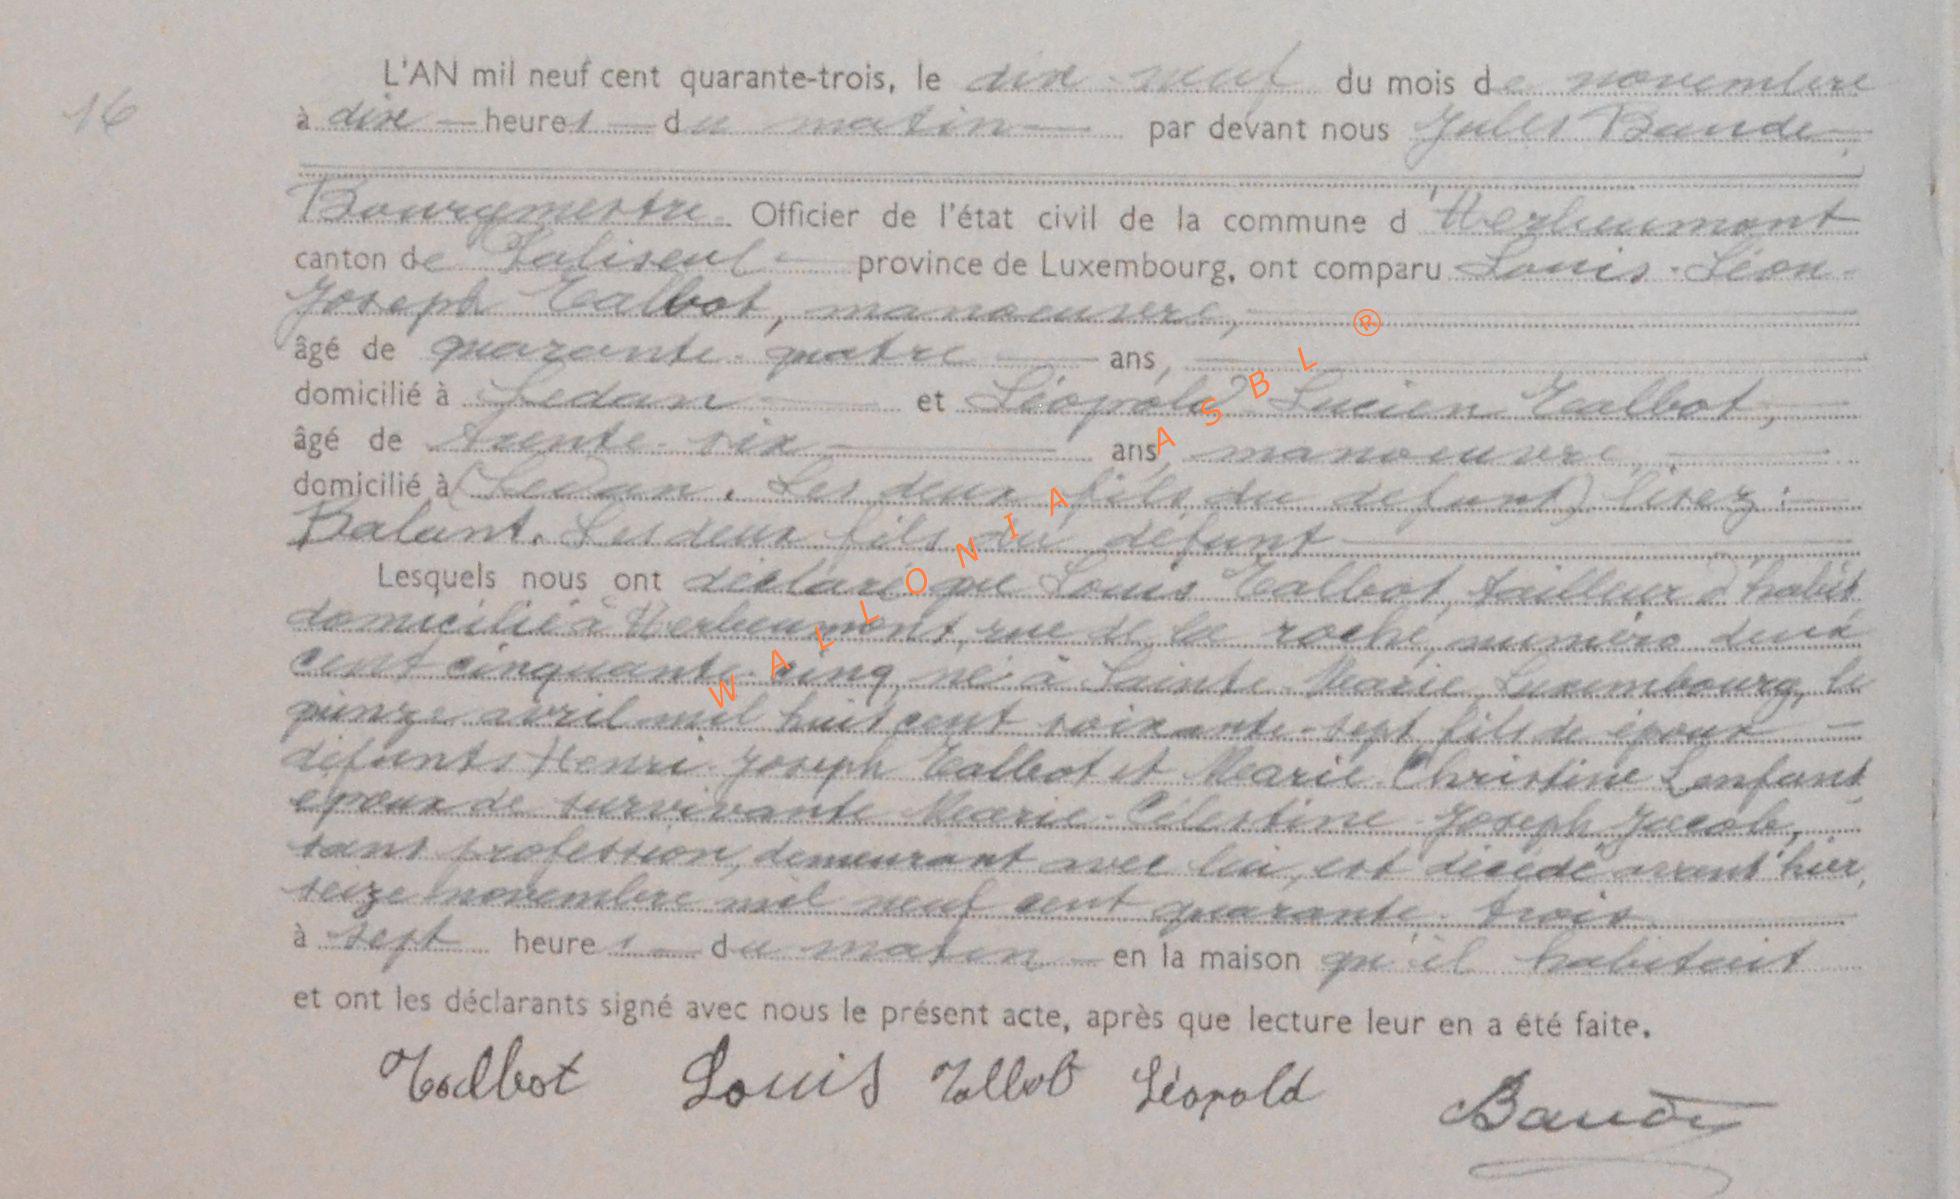 16
L'AN mil neuf cent quarante-trois, le dix-neuf du mois de novembre
à dix heures du matin par devant nous Jules Baude
Bourgmestre Officier de l'état civil de la commune d'Herbeumont
canton de Paliseul province de Luxembourg, ont comparu Louis-Léon-
Joseph Talbot, manoeuvre,
âgé de quarante-quatre ans,
domicilié à Sedan et Léopold Lucien Talbot,
âgé de trente-six ans, manoeuvre,
domicilié à (Sedan. Les deux fils du défunt) lisez:
Balant. Les deux fils du défunt
Lesquels nous ont déclaré que Louis Talbot, tailleur d'habit
domicilié à Herbeumont, rue de la roche, numéro deux
cent cinquante-cinq, né à Sainte-Marie, Luxembourg, le
quinze avril mil huit cent soixante-sept, fils de époux
défunts Henri-Joseph Talbot et Marie-Christine Lenfant
époux de survivante Marie-Célestine-Joseph Jacob,
sans profession, demeurant avec lui, est décédé avant hier,
seize novembre mil neuf cent quarante-trois
à sept heures du matin en la maison qu'il habitait
et ont les déclarants signé avec nous le présent acte, après que lecture leur en a été faite.
Talbot Louis Talbot Léopold Baude
WALLONIA ASBL ®